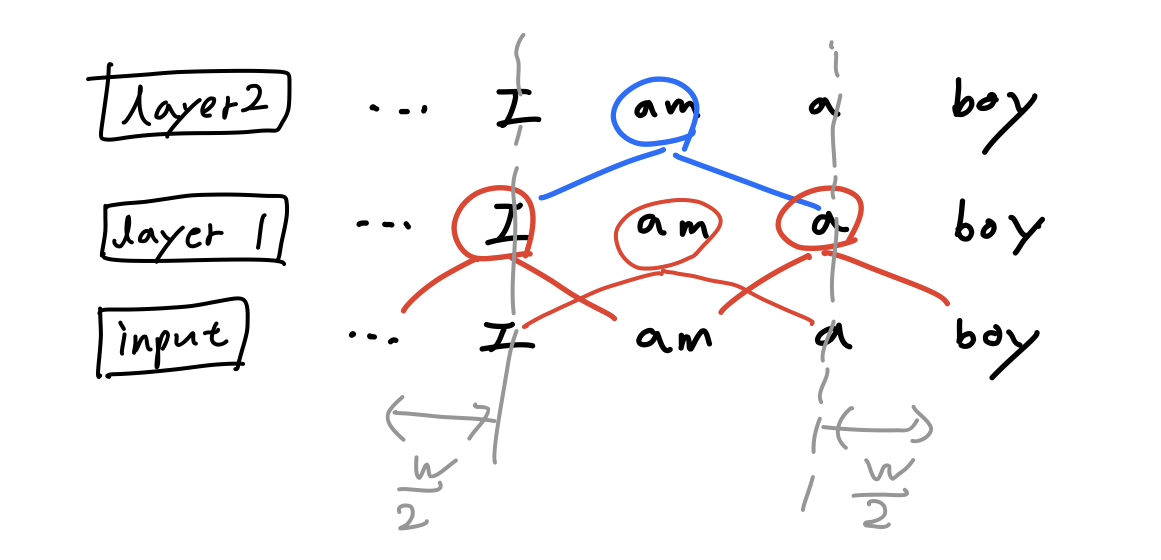 layer2 ... I am a boy
layer 1 ... I am a boy
input ... I am a boy
w/2 w/2